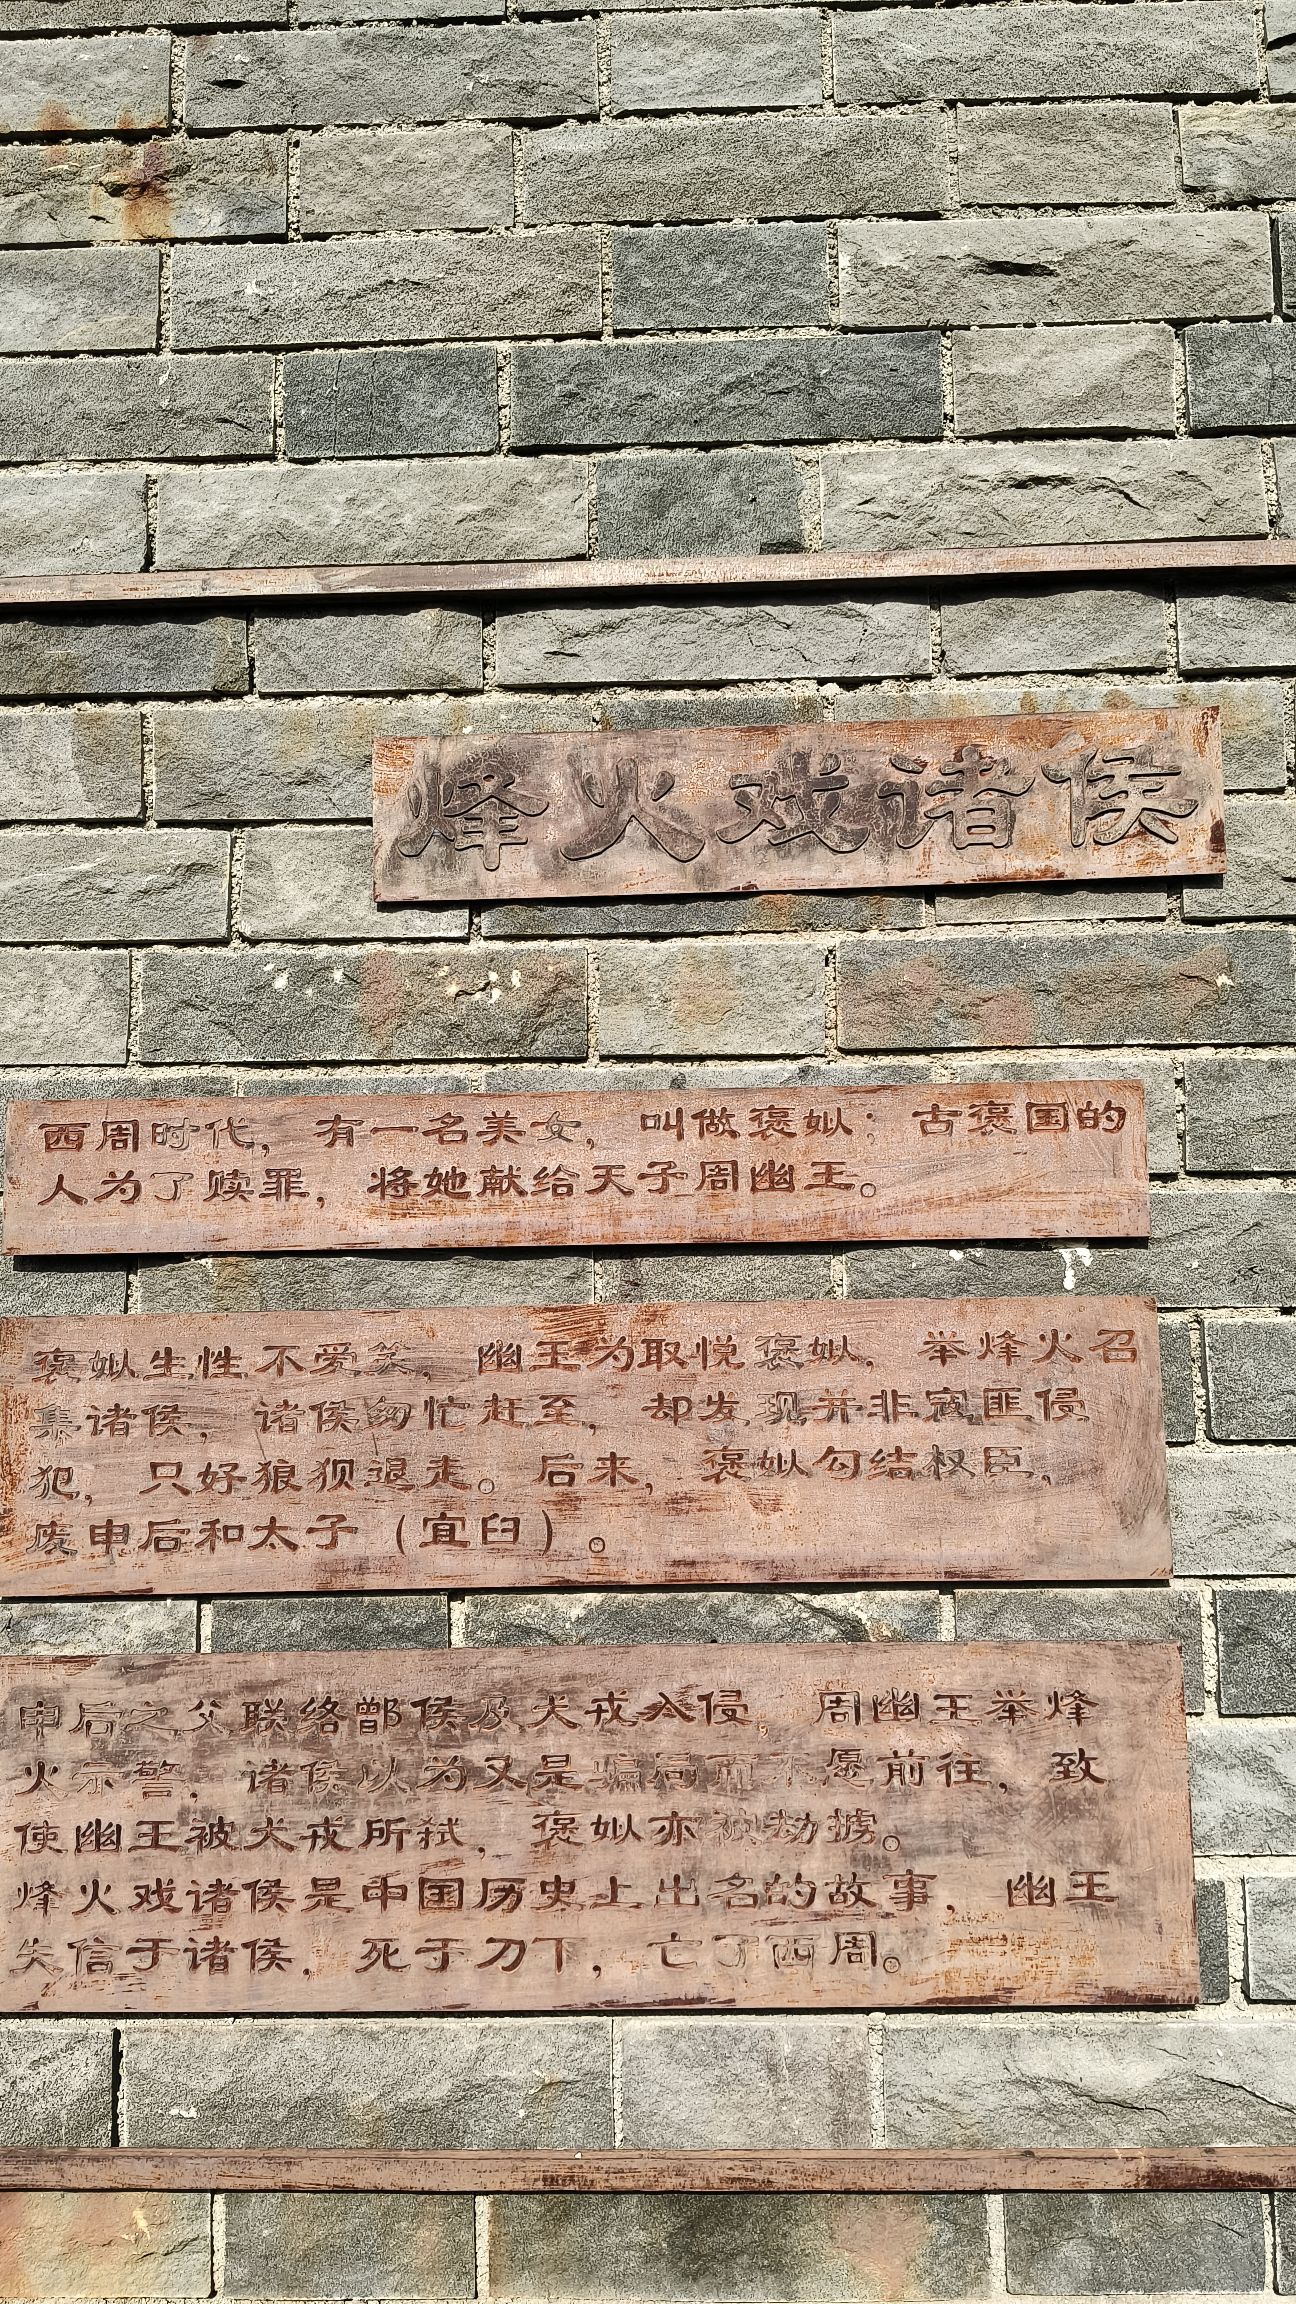 烽火戏诸侯
西周时代，有一名美女，叫做褒姒；古褒国的
人为了赎罪，将她献给天子周幽王。
褒姒生性不爱笑，幽王为取悦褒姒，举烽火召
集诸侯，诸侯匆忙赶至，却发现并非寇匪侵
犯，只好狼狈退走。后来，褒姒勾结权臣，
废申后和太子（宜臼）。
申后之父联络鄫侯及犬戎入侵，周幽王举烽
火示警，诸侯以为又是骗局而不愿前往，致
使幽王被犬戎所弑，褒姒亦被劫掳。
烽火戏诸侯是中国历史上出名的故事，幽王
失信于诸侯，死于刀下，亡了西周。